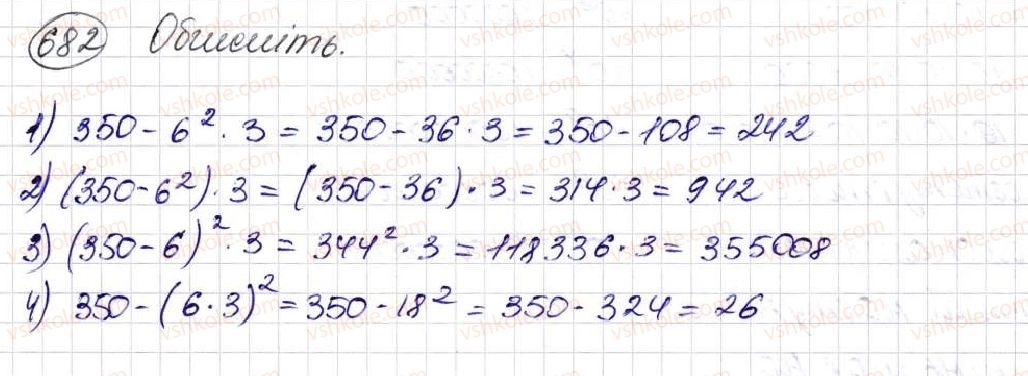 682 Обчисліть.
1) 350 - 6² · 3 = 350 - 36 · 3 = 350 - 108 = 242
2) (350 - 6²) · 3 = (350 - 36) · 3 = 314 · 3 = 942
3) (350 - 6)² · 3 = 344² · 3 = 118336 · 3 = 355008
4) 350 - (6 · 3)² = 350 - 18² = 350 - 324 = 26